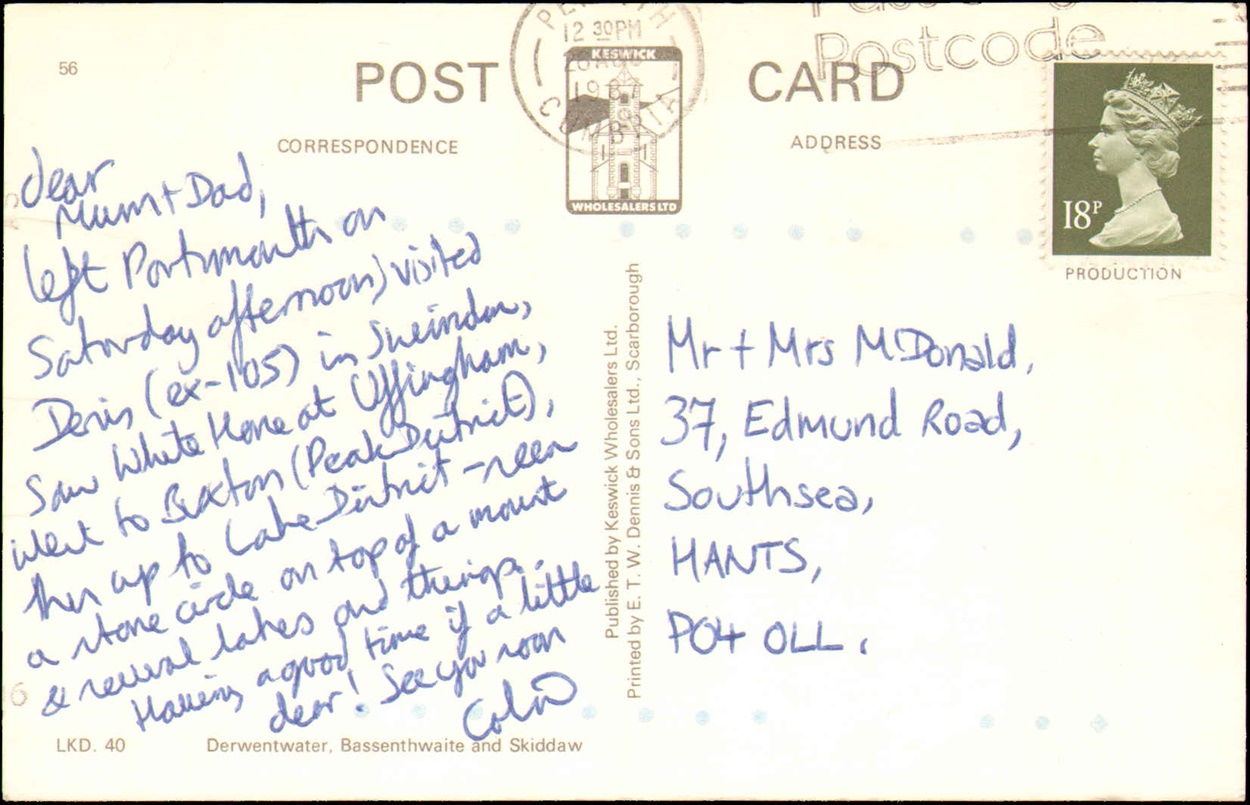 56
POST CARD
CORRESPONDENCE
ADDRESS
PENRITH
12 30PM
AUG
1987
CUMBRIA
Postcode
KESWICK
WHOLESALERS LTD
18P
PRODUCTION
dear
Mum + Dad,
left Portsmouth on
Saturday afternoon, visited
Denis (ex-105) in Swindon,
Saw White Horse at Uffingham,
went to Buxton (Peak District),
then up to Lake District - seen
a stone circle on top of a mount
& several lakes and things.
Having a good time if a little
dear! See you soon
Colin
Published by Keswick Wholesalers Ltd.
Printed by E. T. W. Dennis & Sons Ltd., Scarborough
Mr + Mrs McDonald,
37, Edmund Road,
Southsea,
HANTS,
PO4 0LL.
LKD. 40
Derwentwater, Bassenthwaite and Skiddaw